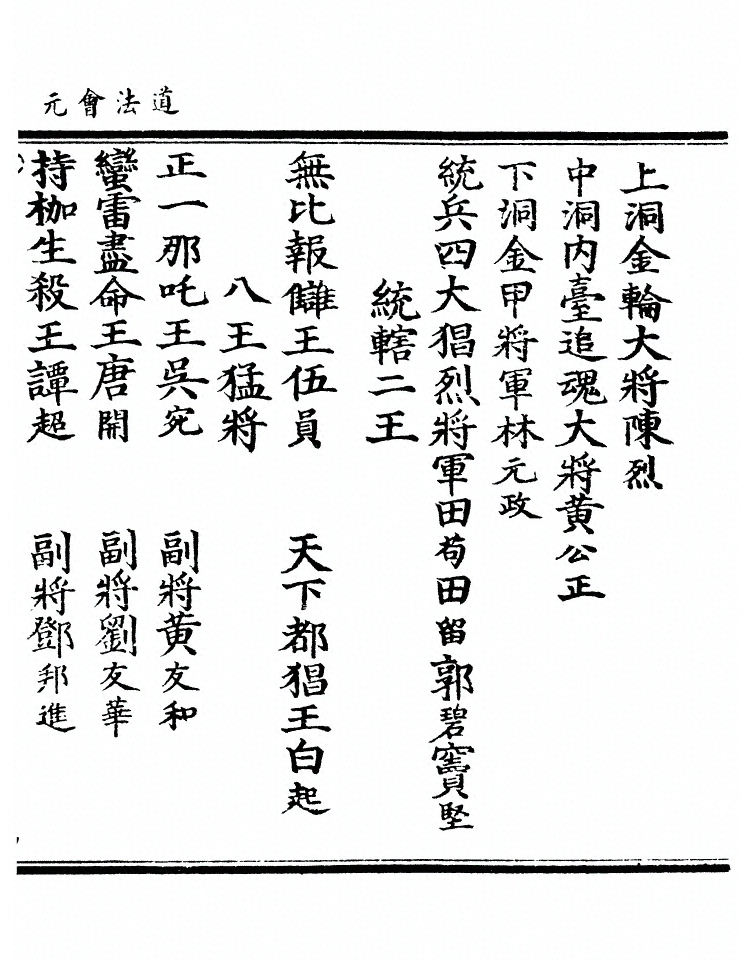 道法會元
上洞金輪大將陳烈
中洞內臺追魂大將黃公正
下洞金甲將軍林元政
統兵四大猖烈將軍田苟田留郭碧竇堅
統轄二王
無比報讎王伍員 天下都猖王白起
八王猛將
正一那吒王吳宛 副將黃友和
蠻雷盡命王唐開 副將劉友華
持枷生殺王譚超 副將鄧邦進